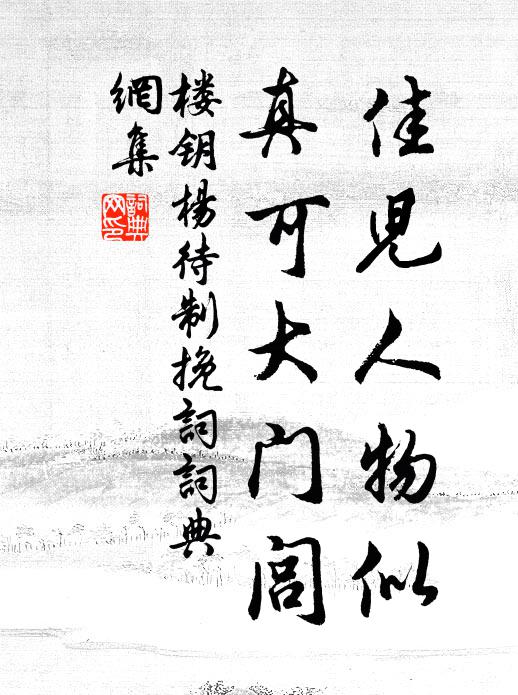 佳児人物似
真可大门闾
楼钥杨待制挽詞詞典
網集
詞典
网印